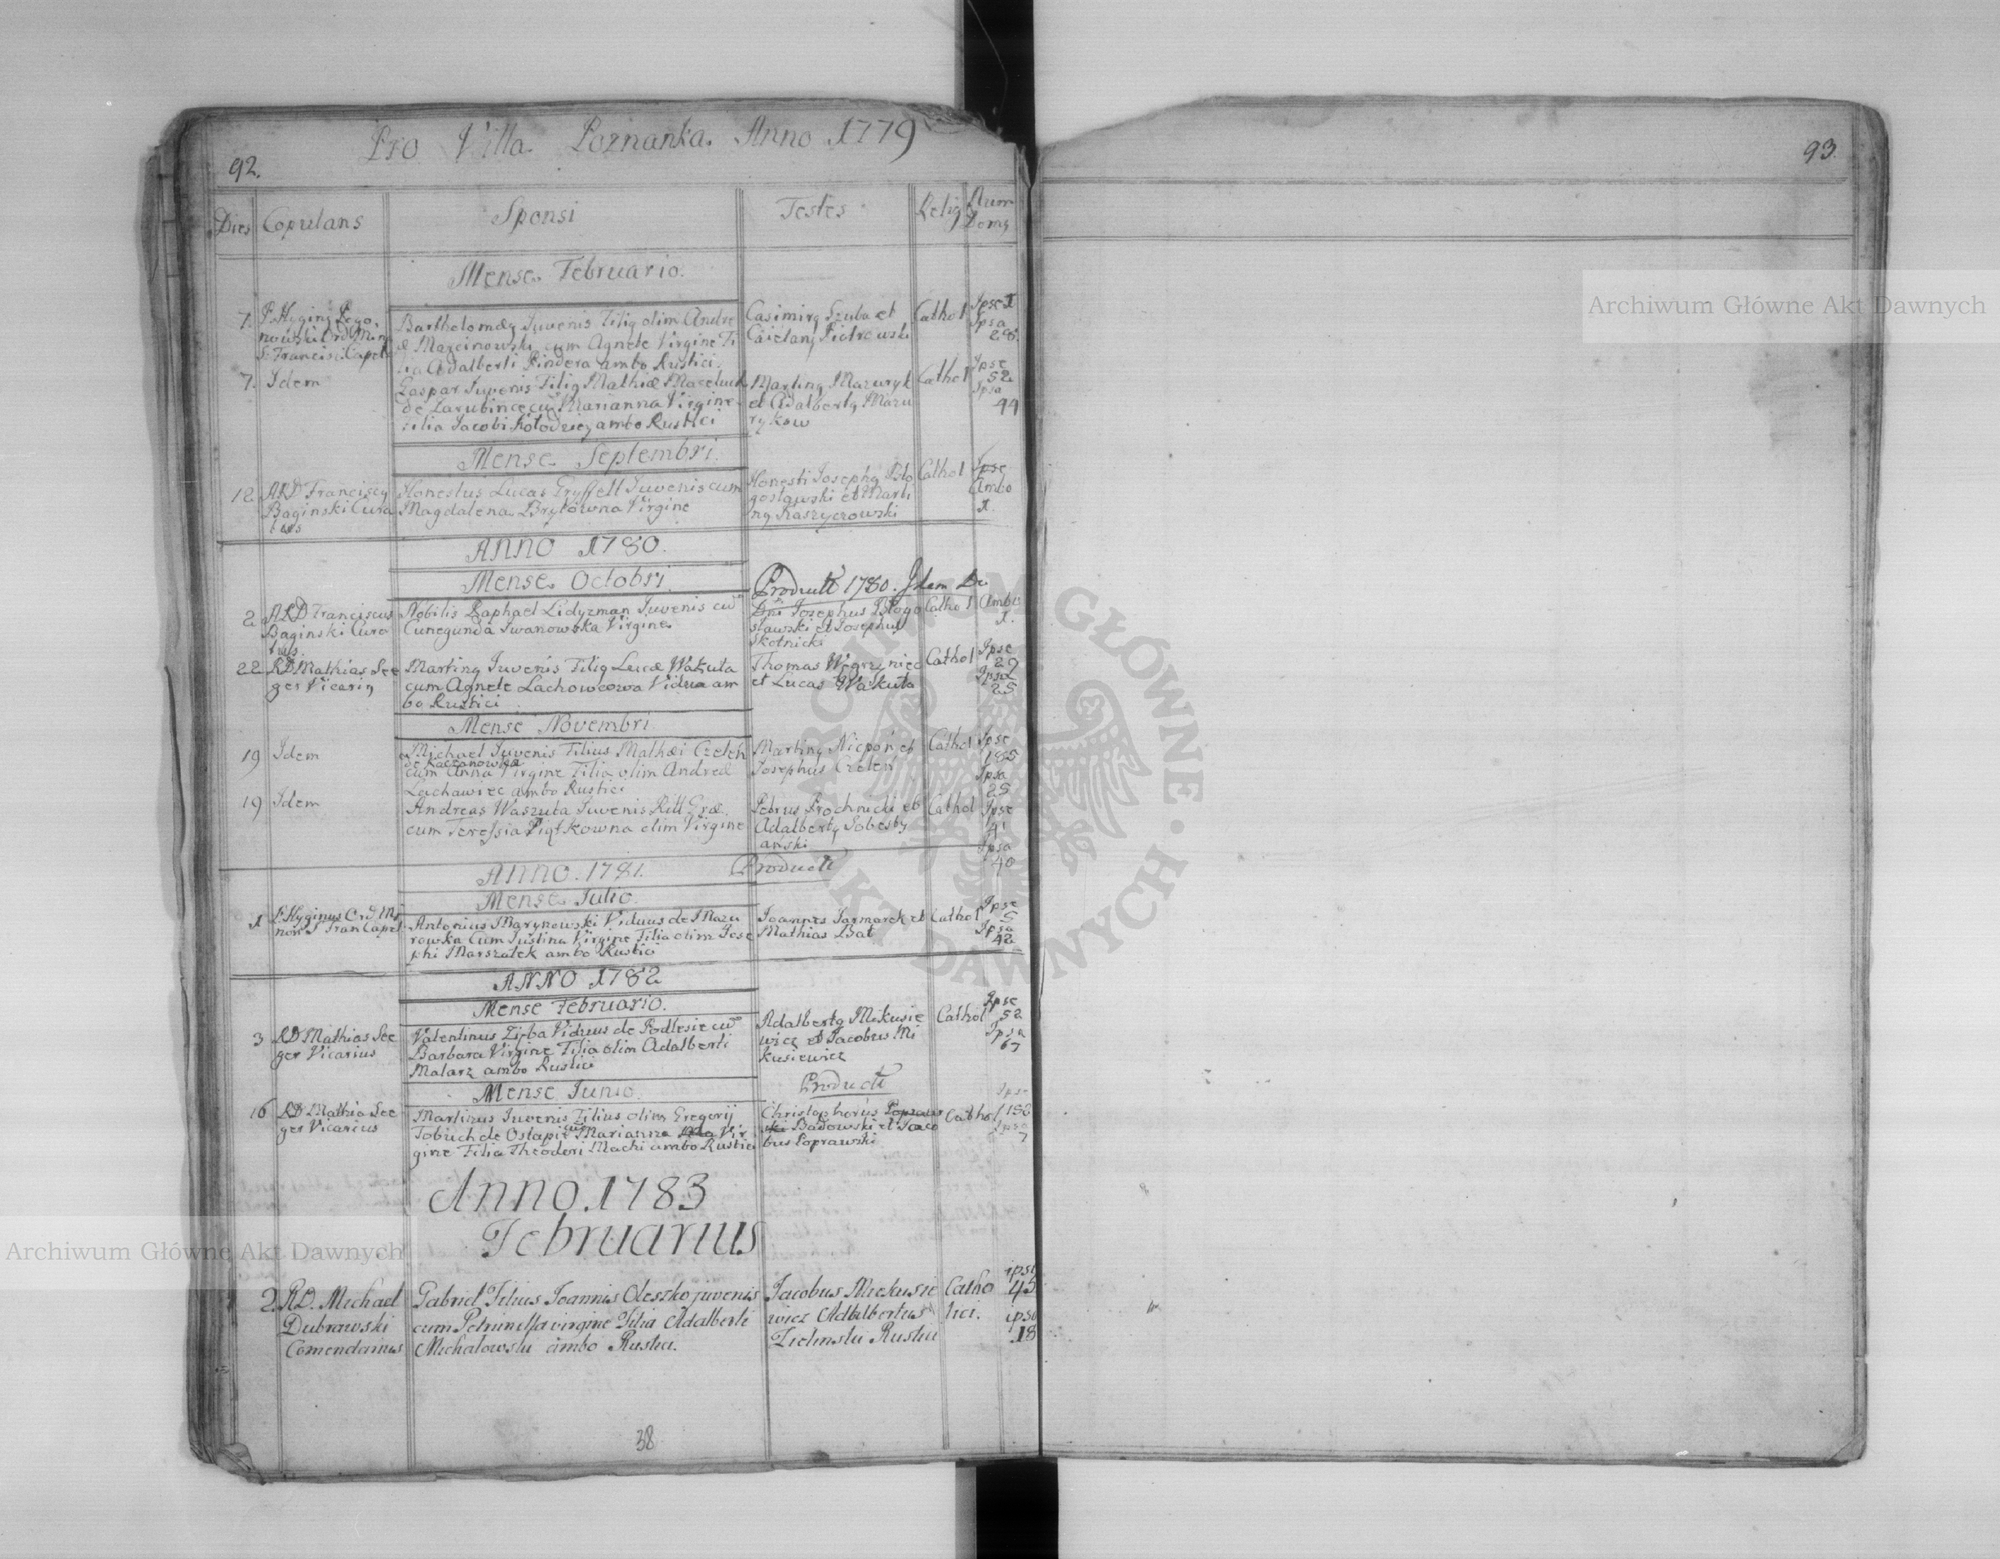 Pro Villa Poznanka. Anno 1779
92.
93.
Dies Copulans Sponsi Testes Relig Num Domq
Mense Februario.
7. P. Hyginq Rogo-
nowski Ord Min
S. Francisci Capel
Bartholomæq Juvenis Filiq olim Andre
æ Marcinowski cum Agnete Virgine Fi
lia Adalberti Pindera ambo Rustici.
Casimirq Szuba et
Caietanq Piotrowski
Cathol
Ipse 1
Ipsa
28.
7. Idem
Gaspar Juvenis Filiq Mathiæ Maceluch
de Zarubince cu Marianna Virgine
Filia Jacobi Kołodziey ambo Rustici
Martinq Mazuryk
et Adalbertq Mazu
rykow
Cathol
Ipse
52
Ipsa
44
Mense Septembri.
12 ARD Franciscq
Baginski Cura
tus
Honestus Lucas Gryffell Juvenis cum
Magdalena Brytowna Virgine
Honesti Josephq Bło
gosławski et Marti
nq Raszyczowski
Cathol
Ipse
Ambo
1.
ANNO 1780.
Mense Octobri
Producti 1780. Idem
2 ARD Franciscus
Baginski Cura
tus.
Nobilis Raphael Lidyzman Juvenis cu
Cunegunda Iwanowska Virgine
Dni Josephus Błogo
sławski et Josephus
Skotnicki
Cathol
Ambo
1.
22 RD Mathias See
ger Vicariq
Martinq Juvenis Filiq Lucæ Wakuła
cum Agnete Lachowcowa Vidua am
bo Rustici
Thomas Węgrzyniec
et Lucas Wakuła
Cathol
Ipse
29
Ipsa
25
Mense Novembri
19 Idem
Michael Juvenis Filius Mathæi Czeleh
de Kaczanowka
cum Anna Virgine Filia olim Andreæ
Lachawiec ambo Rustici
Martinq Niepoń et
Josephus Czeleń
Cathol
Ipse
185
Ipsa
25
19 Idem
Andreas Waszuta Juvenis Ritt Græ.
cum Teressia Piątkowna olim Virgine
Petrus Prochnicki et
Adalbertq Sobesty
anski
Cathol
Ipse
41
Ipsa
40
ANNO. 1781.
Producti
Mense Julio
1 P. Hyginus Ord Mi
nor S Fran Capel
Antonius Marynowski Viduus de Mazu
rowka Cum Justina Virgine Filia olim Jose
phi Marszałek ambo Rustici
Joannes Jarmarek et
Mathias Bat
Cathol
Ipse
5
Ipsa
42
ANNO 1782
Mense Februario.
3 RD Mathias See
ger Vicarius
Valentinus Zięba Viduus de Podlesie cu
Barbara Virgine Filia olim Adalberti
Malarz ambo Rustici
Adalbertq Mikusie
wicz et Jacobus Mi
kusiewicz
Cathol
Ipse
52
Ipsa
67
Mense Junio.
Producti
16 RD Mathia See
ger Vicarius
Martinus Juvenis Filius olim Gregorij
Tobuch de Ostapie cum Marianna Vir
gine Filia Theodori Machi ambo Rustici
Christophorus
Badowski et Jaco
bus Poprawski
Cathol
Ipse
182
Ipsa
7
Anno. 1783
Februarius
2. RD. Michael
Dubrawski
Comendarius
Gabriel Filius Joannis Oleszko juvenis
cum Petrunella virgine Filia Adalberti
Michalowski ambo Rustici.
Jacobus Mickusie
wicz Adalbertus
Zielinski Rustici
Catho
lici.
ipse
45
ipsa
18
38
Archiwum Główne Akt Dawnych
Archiwum Główne Akt Dawnych
ARCHIWUM GŁÓWNE · AKT DAWNYCH ·